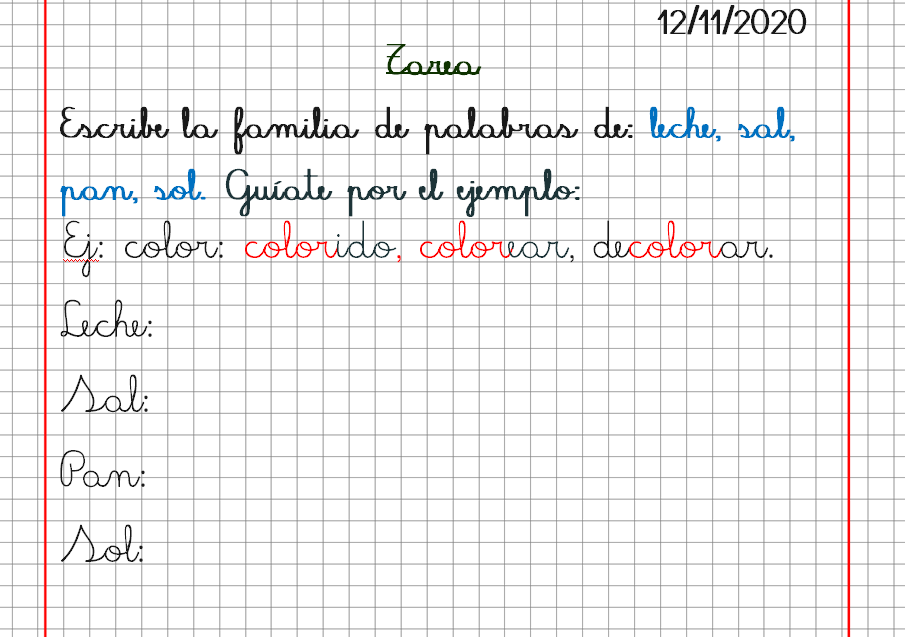 12/11/2020
Tarea
Escribe la familia de palabras de: leche, sal,
pan, sol. Guíate por el ejemplo:
Ej: color: colorido, colorear, decolorar.
Leche:
Sal:
Pan:
Sol: